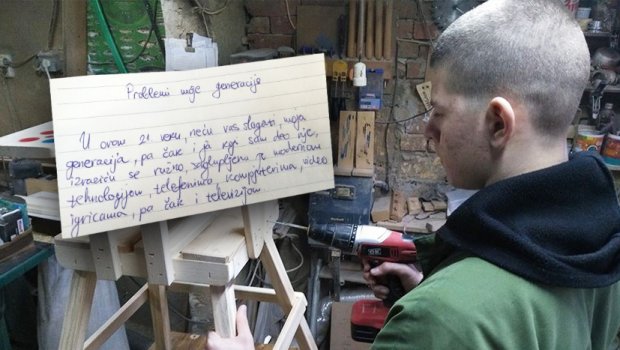 Problemi moje generacije
U ovom 21 veku, neću vas slagati, moja
generacija, pa čak i ja koji sam deo nje,
izraziću se ružno, zaglupljena je modernom
tehnologijom, telefonima, kompjuterima, video
igricama, pa čak i televizijom